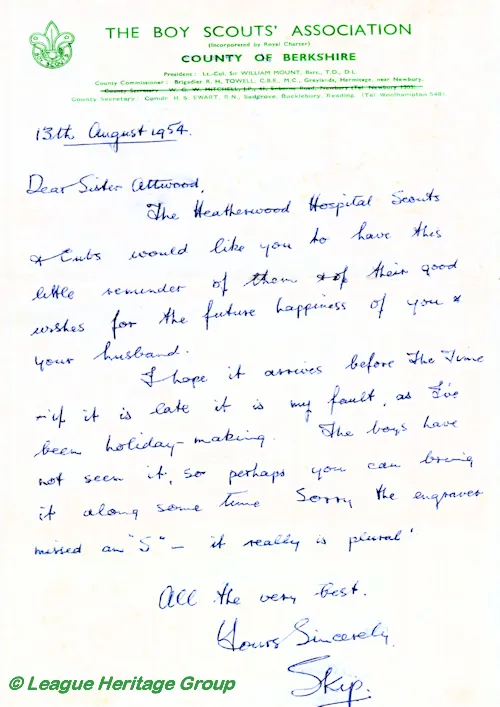 THE BOY SCOUTS' ASSOCIATION
(Incorporated by Royal Charter)
COUNTY OF BERKSHIRE
President: Lt.-Col. Sir WILLIAM MOUNT, Bart., T.D., D.L.
County Commissioner: Brigadier R. H. TOWELL, C.B.E., M.C., Graylands, Hermitage, near Newbury.
County Secretary: W. G. W. MITCHELL, J.P., Road, Newbury (Tel. Newbury
County Secretary: Comdr. H. S. EWART, R.N., Sadgrove, Bucklebury, Reading. (Tel. Woolhampton
13th August 1954.
Dear Sister Attwood,
The Heatherwood Hospital Scouts
& Cubs would like you to have this
little reminder of them & of their good
wishes for the future happiness of you &
your husband.
I hope it arrives before The Time
- if it is late it is my fault, as I've
been holiday-making. The boys have
not seen it, so perhaps you can bring
it along some time Sorry the engraver
missed an "S" – it really is plural!
All the very best.
Yours Sincerely,
Skip.
© League Heritage Group